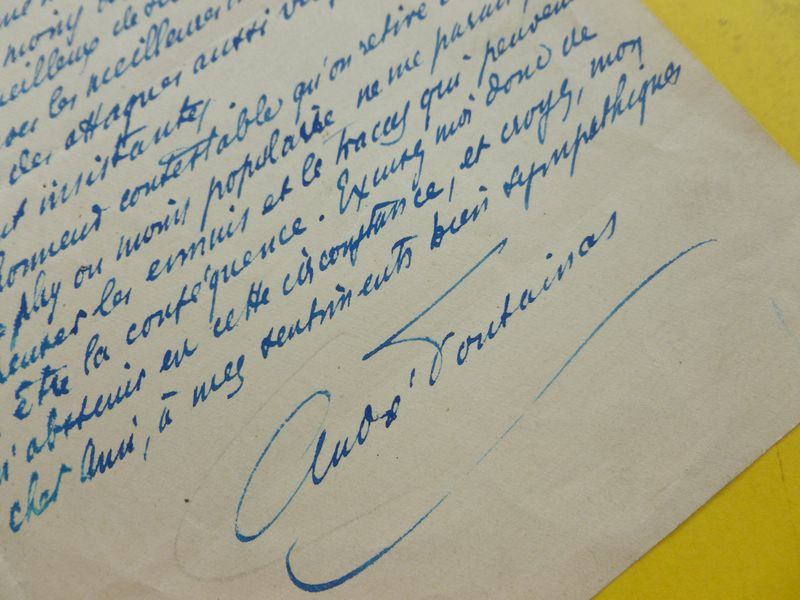 moins
meilleurs de
les meilleures
des attaques aussi
insistantes.
honneur contestable qu'on retire
plus ou moins populaire ne me paraît
penser les ennuis et le tracas qui peuvent
être la conséquence. Excusez moi donc de
m'abstenir en cette circonstance, et croyez, mon
cher Ami, à mes sentiments bien sympathiques
André Fontainas